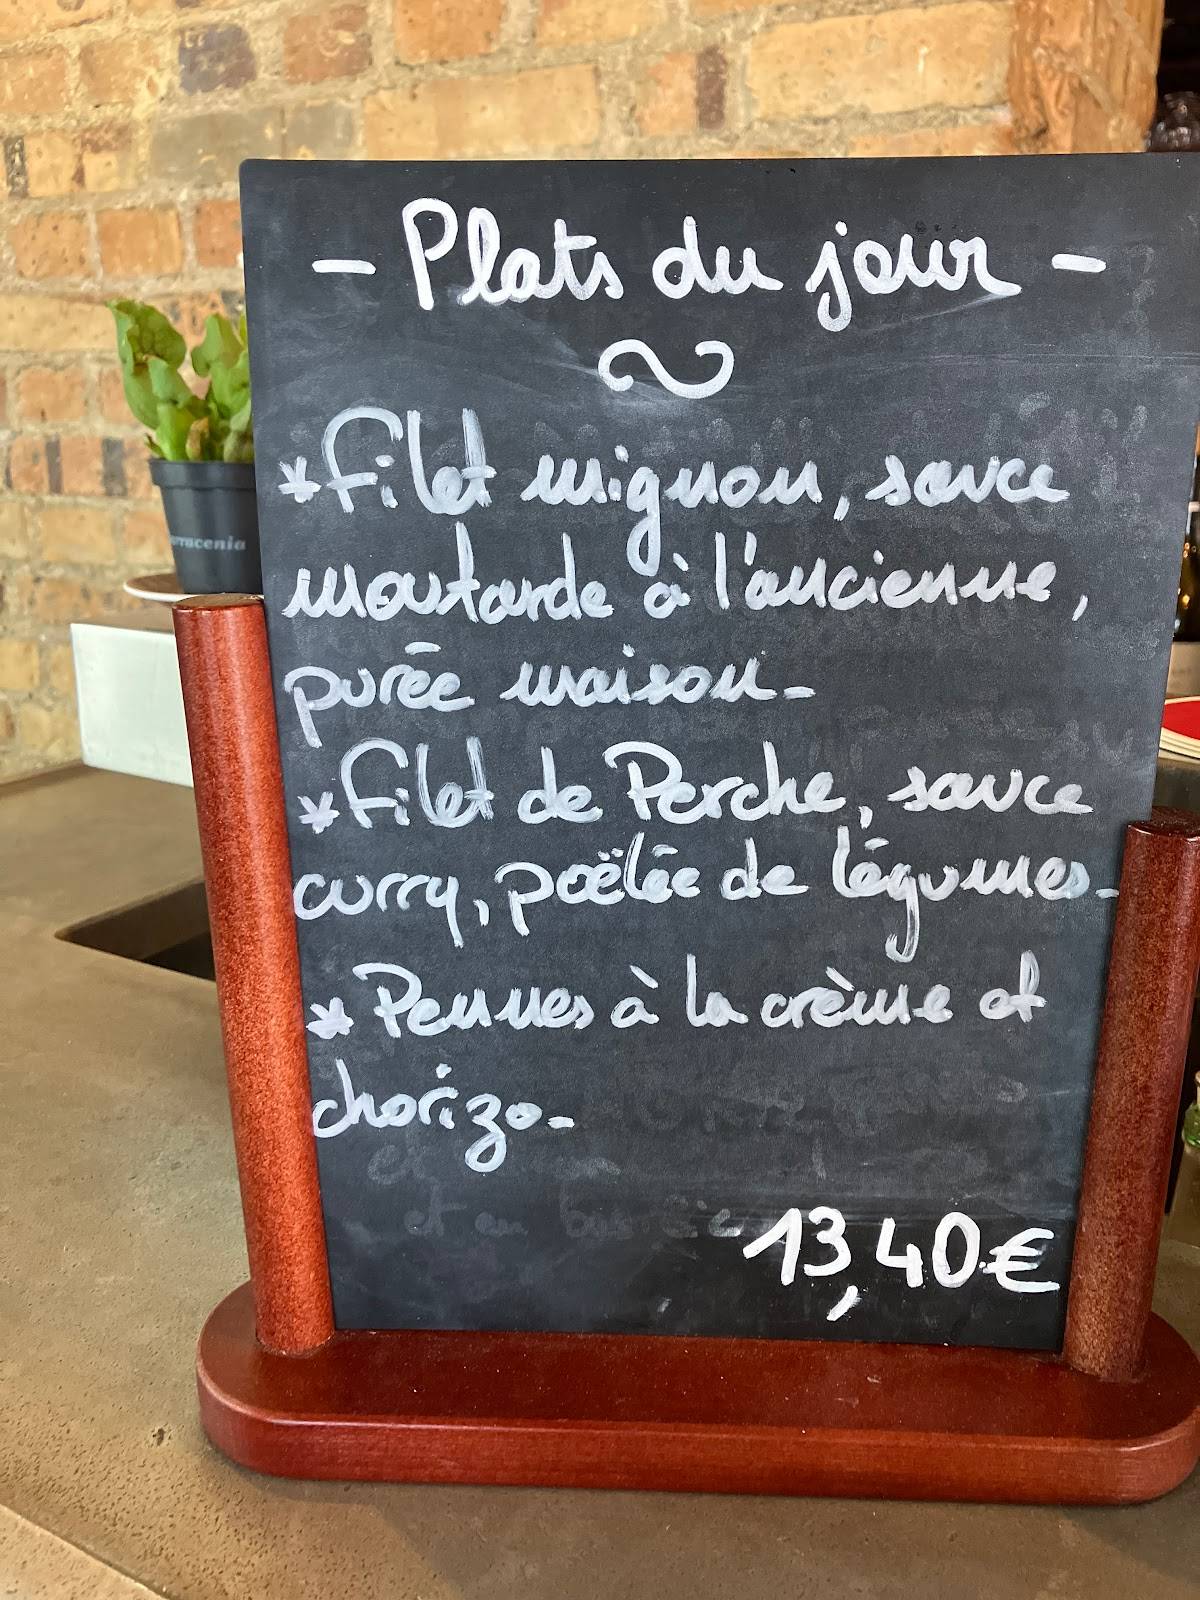 - Plats du jour -
*Filet mignon, sauce
moutarde à l'ancienne,
purée maison-
*Filet de Perche, sauce
curry, poëlée de légumes-
*Pennes à la crème et
chorizo-
13,40€